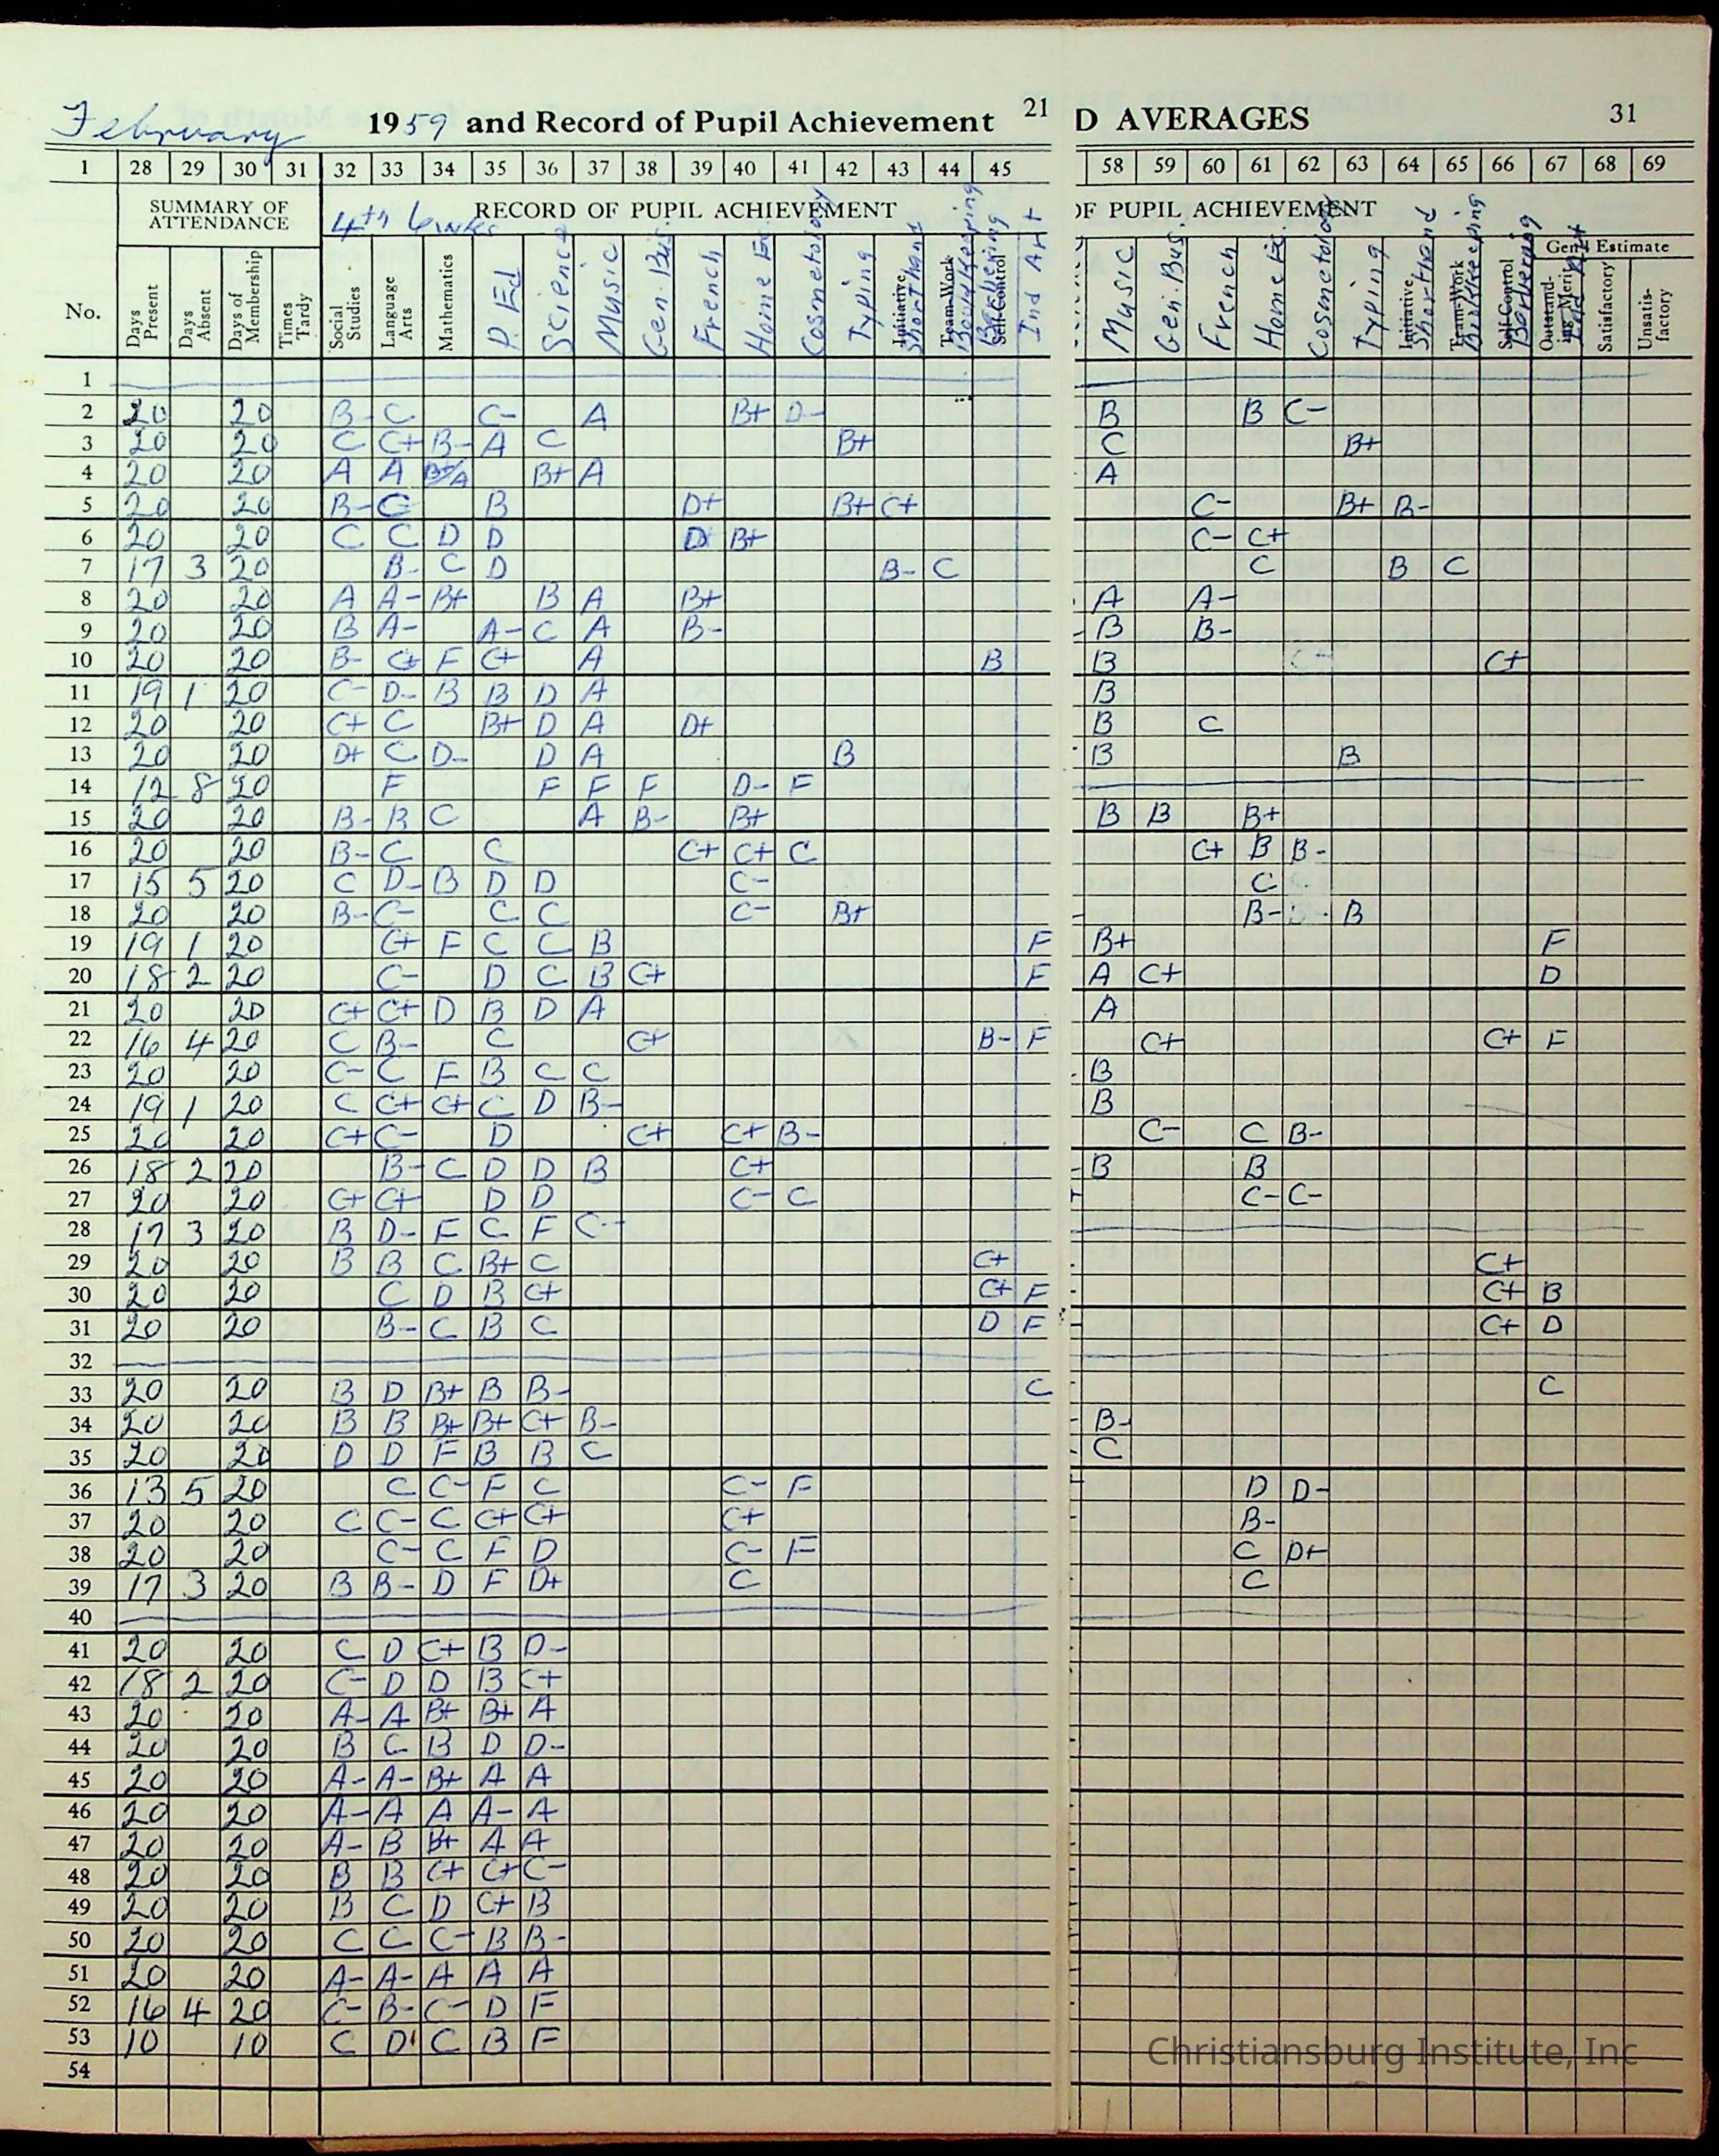 February 1959 and Record of Pupil Achievement 21
1 28 29 30 31 32 33 34 35 36 37 38 39 40 41 42 43 44 45
SUMMARY OF ATTENDANCE 4th 6 weeks RECORD OF PUPIL ACHIEVEMENT
No. Days Present Days Absent Days of Membership Times Tardy Social Studies Language Arts Mathematics P. Ed Science Music Gen. Bus. French Home Ec. Cosmetology Typing Initiative Shorthand Team-Work Bookkeeping Self-Control Barbering Ind Art
1
2 20 20 B- C C- A B+ D-
3 20 20 C C+ B- A C B+
4 20 20 A A A B+ A
5 20 20 B- C B D+ B+ C+
6 20 20 C C D D D+ B+
7 17 3 20 B- C D B- C
8 20 20 A A- B+ B A B+
9 20 20 B A- A- C A B-
10 20 20 B- C+ F C+ A B
11 19 1 20 C- D- B B D A
12 20 20 C+ C B+ D A D+
13 20 20 D+ C D- D A B
14 12 8 20 F F F F D- F
15 20 20 B- B C A B- B+
16 20 20 B- C C C+ C+ C
17 15 5 20 C D- B D D C-
18 20 20 B- C- C C C- B+
19 19 1 20 C+ F C C B F
20 18 2 20 C- D C B C+ F
21 20 20 C+ C+ D B D A
22 16 4 20 C B- C C+ B- F
23 20 20 C- C F B C C
24 19 1 20 C C+ C+ C D B-
25 20 20 C+ C- D C+ C+ B-
26 18 2 20 B- C D D B C+
27 20 20 C+ C+ D D C- C
28 17 3 20 B D- F C F C-
29 20 20 B B C B+ C C+
30 20 20 C D B C+ C+ F
31 20 20 B- C B C D F
32
33 20 20 B D B+ B B- C
34 20 20 B B B+ B+ C+ B-
35 20 20 D D F B B C
36 13 5 20 C C- F C C- F
37 20 20 C C- C C+ C+ C+
38 20 20 C- C F D C- F
39 17 3 20 B B- D F D+ C
40
41 20 20 C D C+ B D-
42 18 2 20 C- D D B C+
43 20 20 A- A B+ B+ A
44 20 20 B C B D D-
45 20 20 A- A- B+ A A
46 20 20 A- A A A- A
47 20 20 A- B B+ A A
48 20 20 B B C+ C+ C-
49 20 20 B C D C+ B
50 20 20 C C C- B B-
51 20 20 A- A- A A A
52 16 4 20 C- B- C- D F
53 10 10 C D C B F
54
D AVERAGES 31
58 59 60 61 62 63 64 65 66 67 68 69
OF PUPIL ACHIEVEMENT
Gen'l Estimate
Music Gen. Bus. French Home Ec. Cosmetology Typing Initiative Shorthand Team-Work Bookkeeping Self-Control Barbering Outstanding Merit Ind Art Satisfactory Unsatisfactory
B B C-
C B+
A
C- B+ B-
C- C+
C B C
A A-
B B-
B C+
B
B C
B B
B B B+
C+ B B-
C
B- B
B+ F
A C+ D
A
C+ C+ F
B
B
C- C B-
B B
C- C-
C+
C+ B
C+ D
C
B-
C
D D-
B-
C D+
C
Christiansburg Institute, Inc